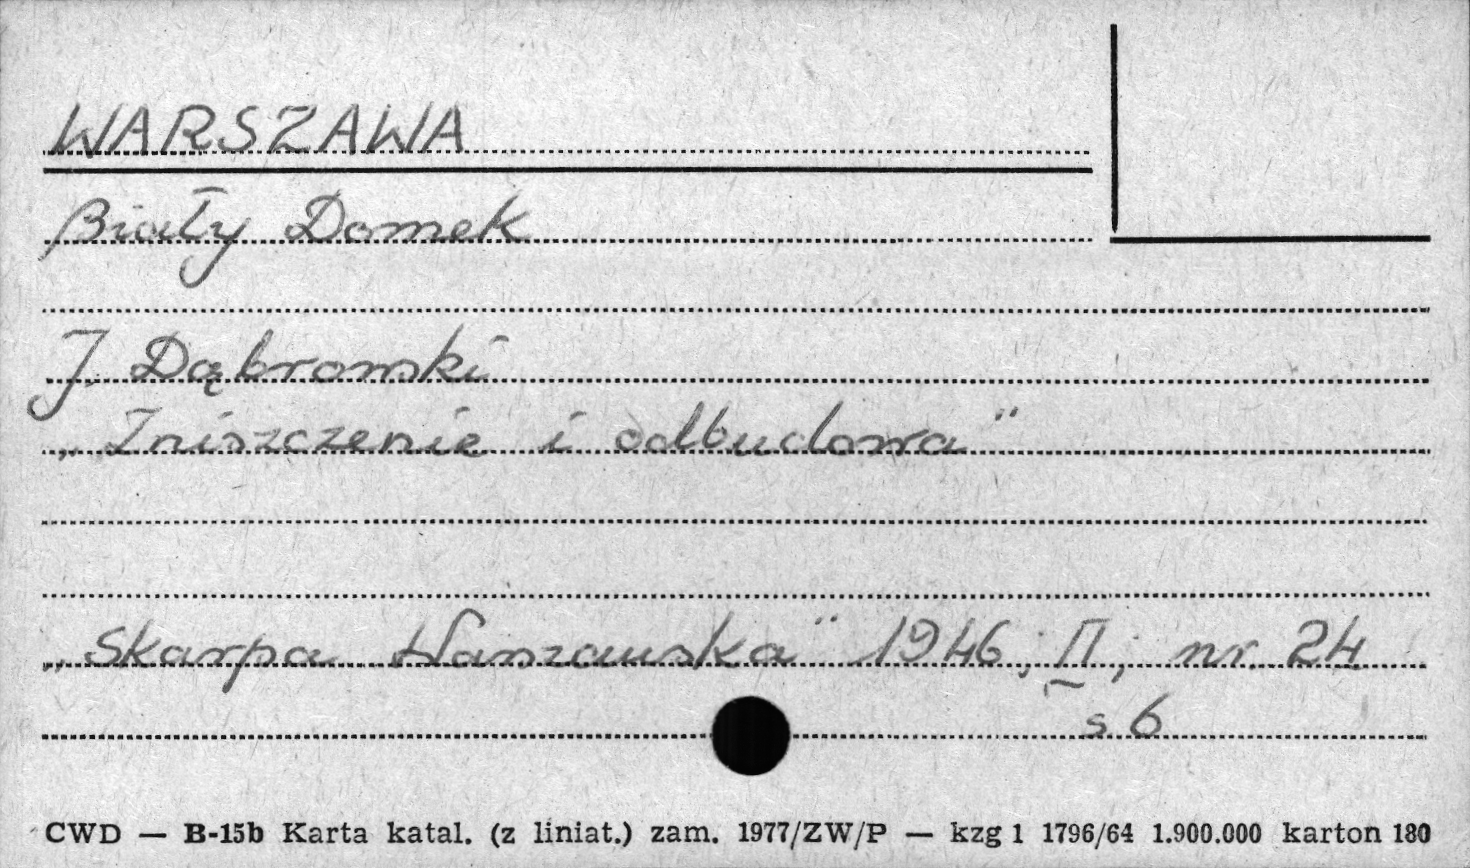 WARSZAWA
Biały Domek
J. Dąbrowski
„Zniszczenie i odbudowa"
„Skarpa Warszawska" 1946; II; nr. 24
s 6
CWD — B-15b Karta katal. (z liniat.) zam. 1977/ZW/P — kzg 1 1796/64 1.900.000 karton 180